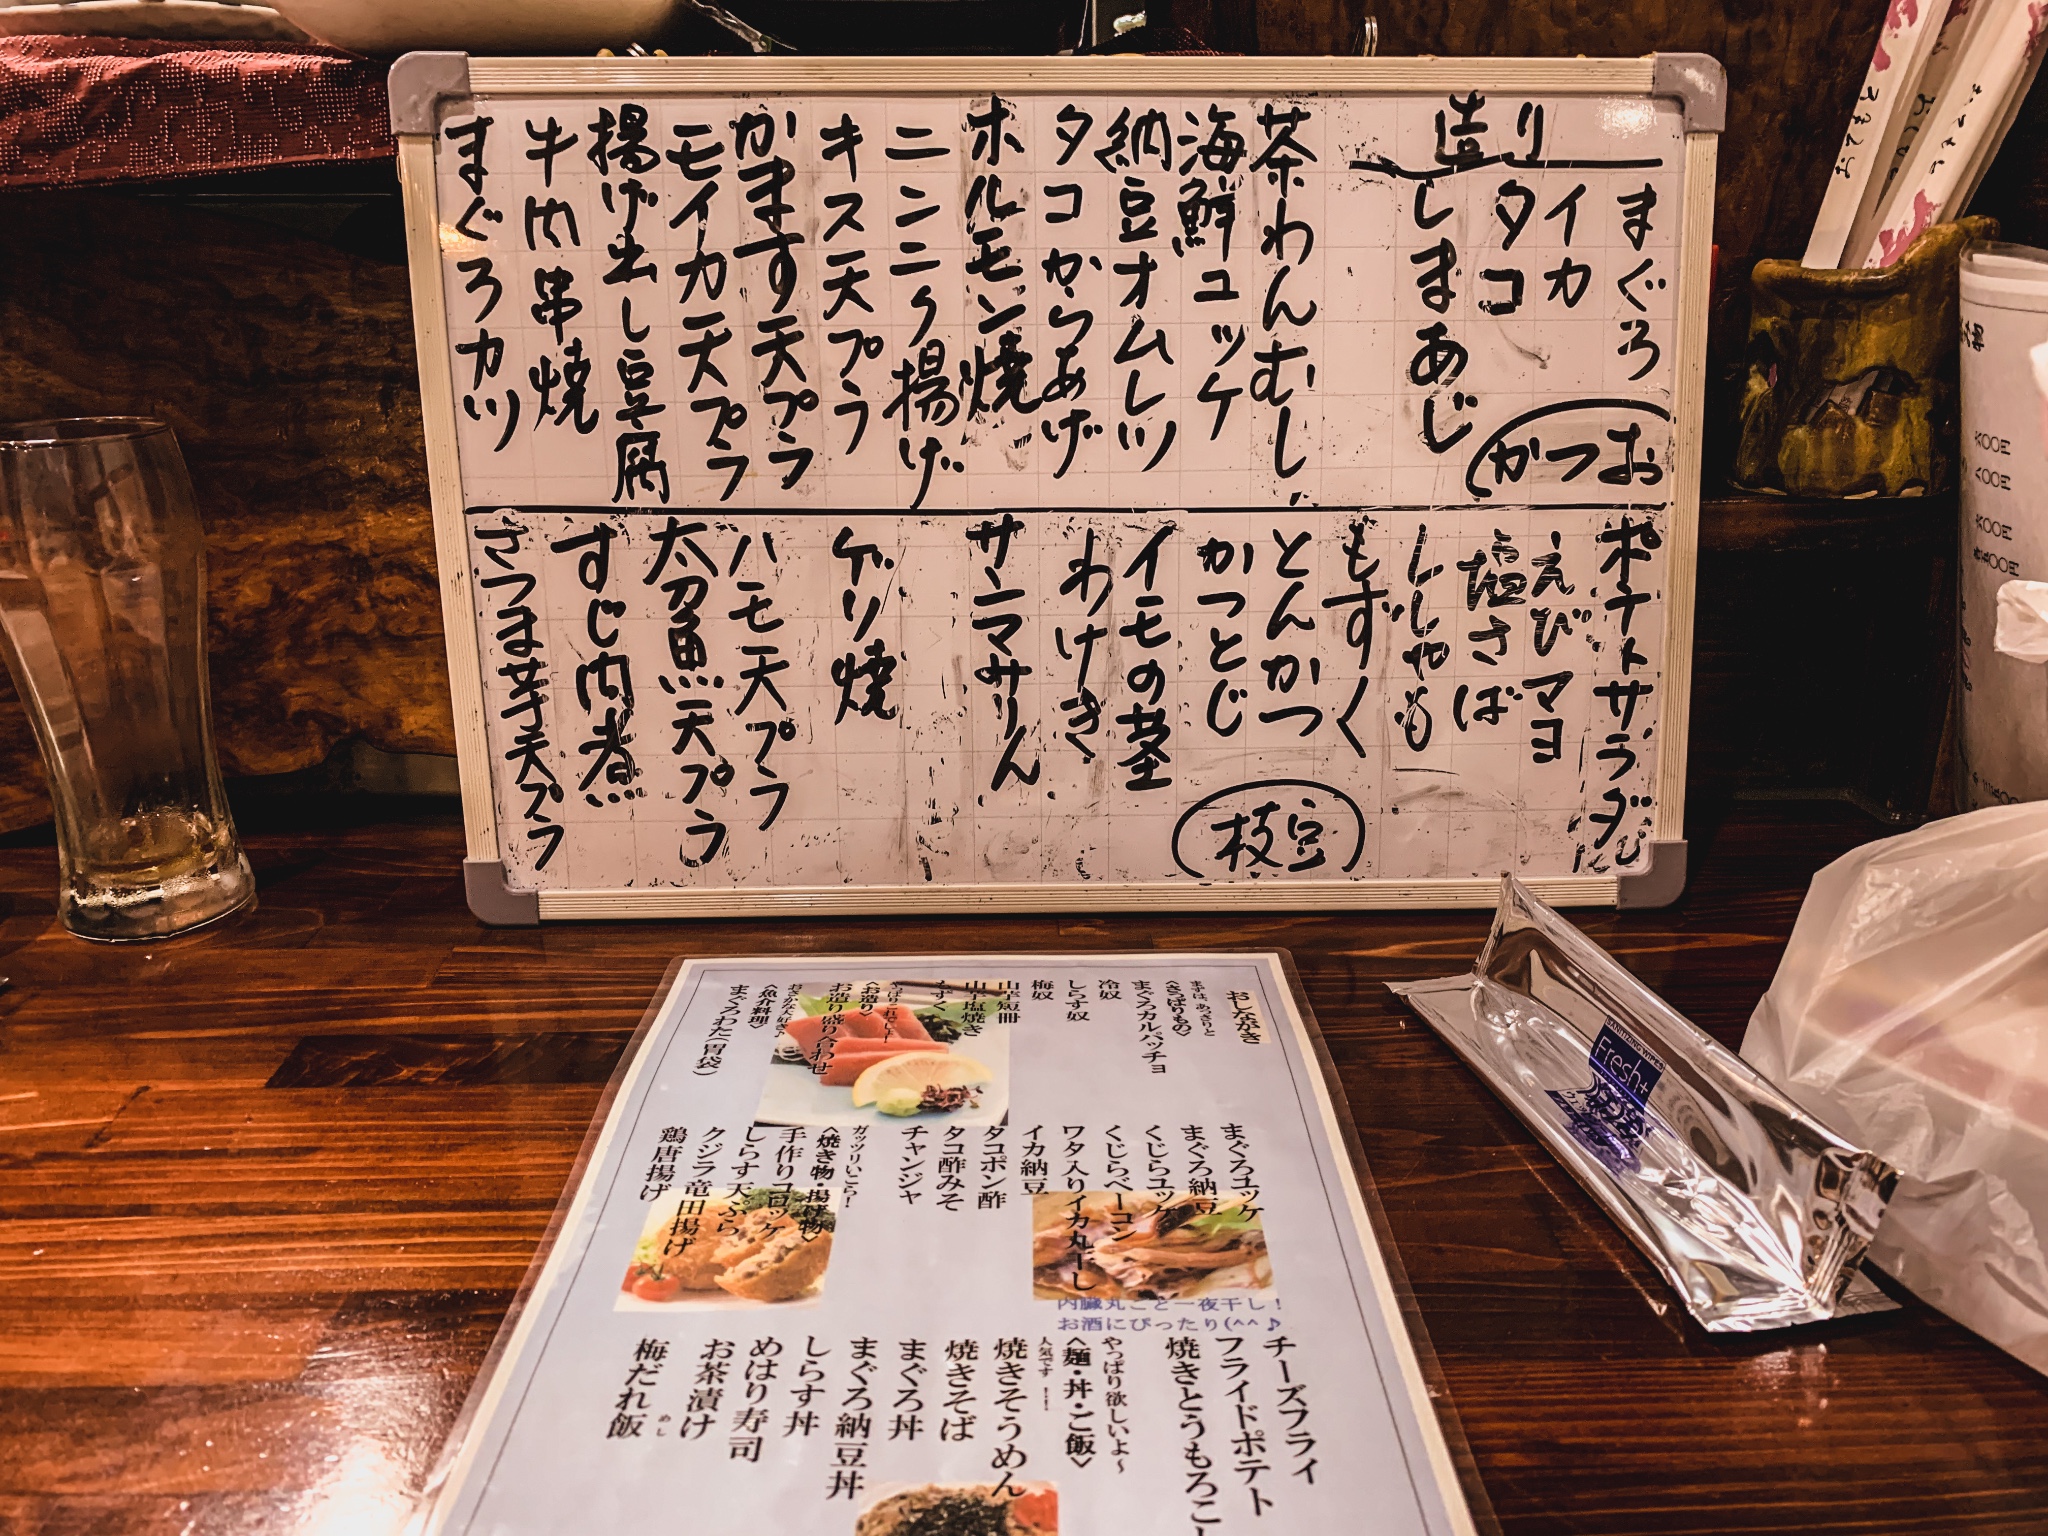 造り
まぐろ
イカ
タコ
しまあじ
かつお
茶わんむし
海鮮ユッケ
納豆オムレツ
タコからあげ
ホルモン焼
ニンニク揚げ
キス天プラ
かます天プラ
モイカ天プラ
揚げ出し豆腐
牛肉串焼
まぐろカツ
ポテトサラダ
えびマヨ
塩さば
ししゃも
もずく
とんかつ
かつとじ
枝豆
イモの茎
わけぎ
サンマみりん
ゲソ焼
ハモ天プラ
太刀魚天プラ
すじ肉煮
さつま芋天プラ
おしながき
まずは、あっさりと
<さっぱりもの>
まぐろカルパッチョ
冷奴
しらす奴
梅奴
山芋短冊
山芋塩焼き
もずく
やっぱりこれでしょ!
<お造り>
お造り盛り合わせ
おさかな大好き♪
<魚介料理>
まぐろわた(胃袋)
まぐろユッケ
まぐろ納豆
くじらユッケ
くじらベーコン
ワタ入りイカ丸干し
内臓丸ごと一夜干し!
お酒にぴったり(^^♪
イカ納豆
タコポン酢
タコ酢みそ
チャンジャ
ガッツリいこら!
<焼き物・揚げ物>
手作りコロッケ
しらす天ぷら
クジラ竜田揚げ
鶏唐揚げ
チーズフライ
フライドポテト
焼きとうもろこ
やっぱり欲しいよ~
<麺・丼・ご飯>
人気です!!
焼きそうめん
焼きそば
まぐろ丼
まぐろ納豆丼
しらす丼
めはり寿司
お茶漬け
梅だれ飯
めし
SANITIZING WIPES
Fresh+